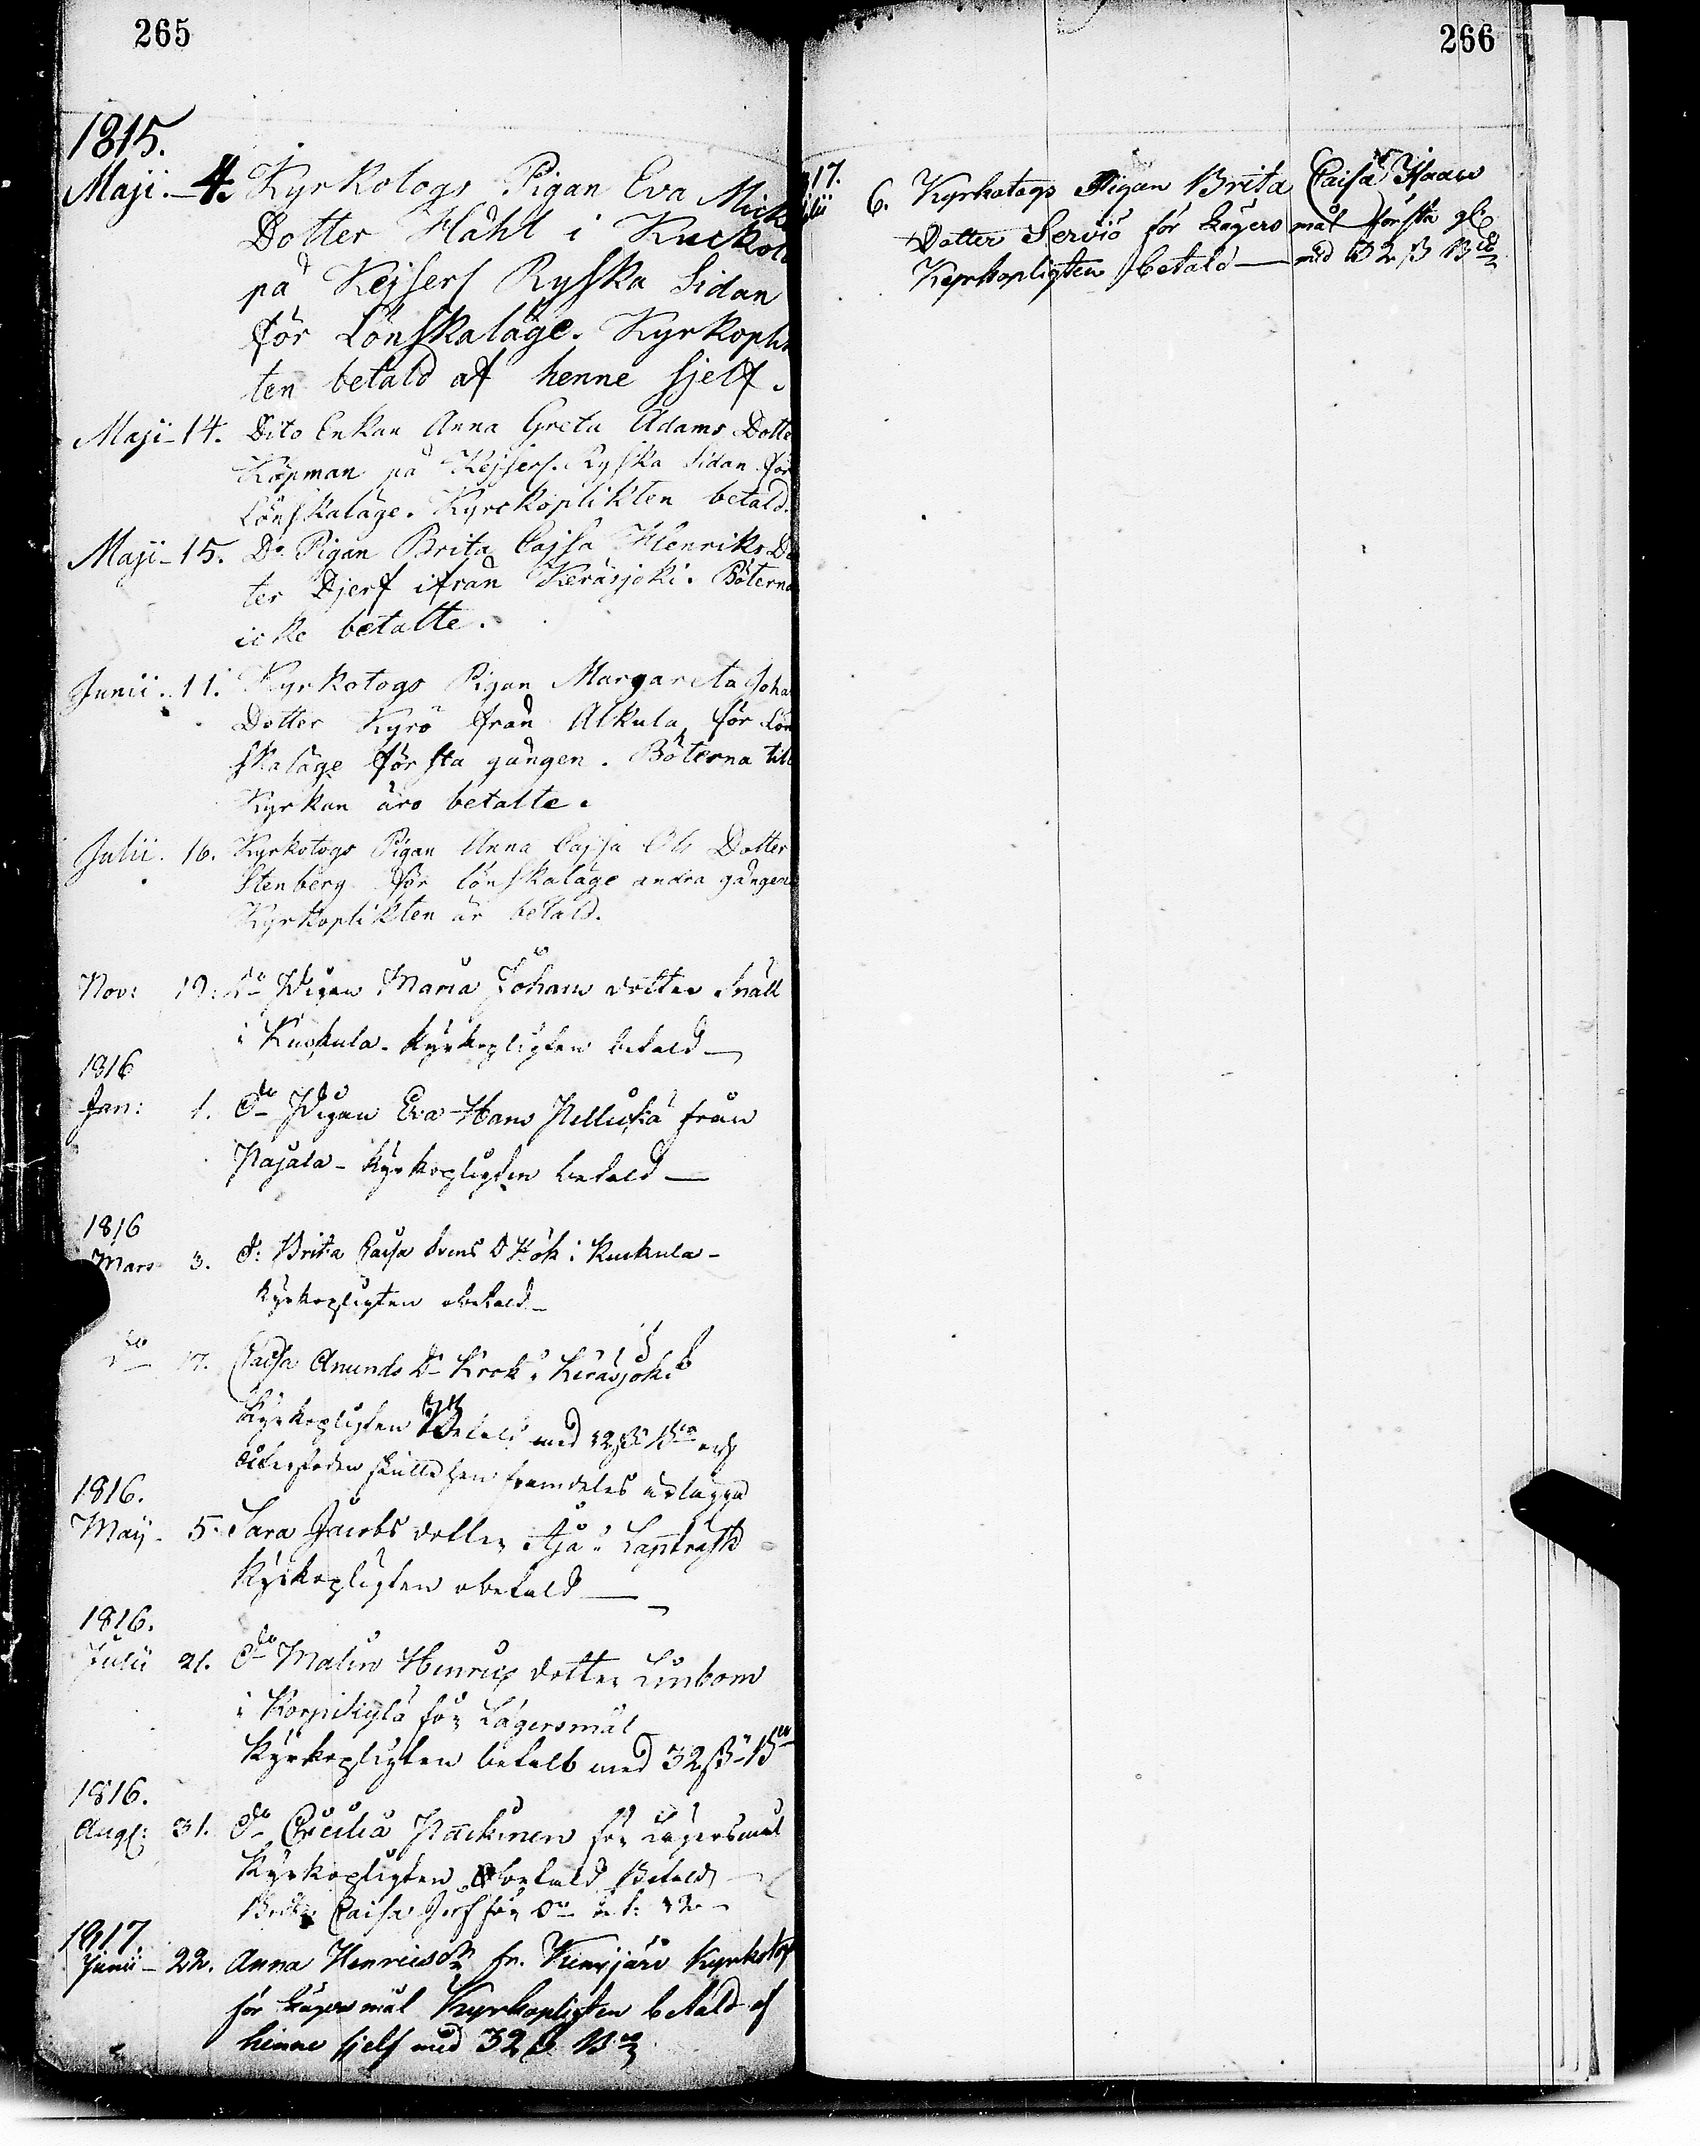 265
1815.
Maji. 4. Kyrkotogs Pigan Eva Mick
Dotter Hahl i Kuckol
på Kejserl Ryska Sidan
för Lönskaläge. Kyrkopli
ten betald af henne sjelf.
Maji 14. Dito Enkan Anna Greta Adams Dotte
Köpman på Kejserl. Ryska Sidan för
Lönskaläge. Kyrckoplikten betald.
Maji 15. Do Pigan Brita Cajsa Henriks Do
ter Djerf ifrån Keräsjoki. Böterna
icke betalte.
Junii. 11. Kyrkotogs Pigan Margareta Joha
Dotter Kyrö från Alkula, för Lön
skaläge första gången. Böterna till
Kyrkan äro betalte.
Julii. 16. Kyrkotogs Pigan Anna Cajsa Ols Dotter
Stenberg för lönskaläge andra gången
Kyrkoplikten är betald.
Nov: 19. Do Pigan Maria Johans dotter Snäll
i Kuckula. Kyrkopligten betald
1816
Jan: 1. Do Pigan Eva Hans från
Pajala - Kyrkopligten betald
1816
Mars 3. D: Brita Caisa Svens D Hök i Kuckula -
Kyrkopligten obetald
Do 17. Caisa Anunds Dr Krok i Keräsjoki
Kyrkopligten betald med 32 ß Bco och
framdeles erlägga
1816.
Maij 5. Sara Jacobs dotter Aja i Lappträsk
Kyrkopligten obetald
1816.
Julii 21. Do Malin Henrics dotter Linbom
i Korpikylä för Lägersmål
Kyrkopligten betald med 32 ß Bco
1816.
Aug: 31. Do Cecilia Päckinen för Lägersmål
Kyrkopligten obetald Betald
Brita Caisa för Do
1817.
Junii 22. Anna Henricsdr fr. Kemijärv Kyrkotogs
för Lägersmål Kyrkopligten betald af
henne sjelf med 32 ß Bco
266
17.
6. Kyrkotogs Pigan Brita Caisa Isaacs
Dotter Serviö för Lägersmål första gg
Kyrkopligten betald med 32 ß Bco